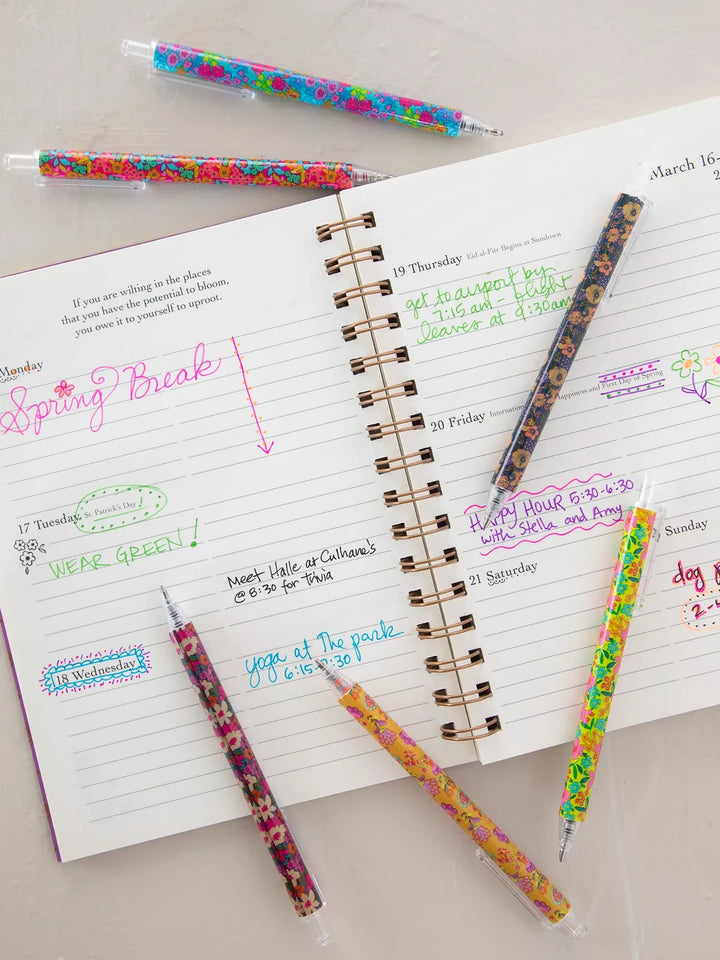 If you are wilting in the places
that you have the potential to bloom,
you owe it to yourself to uproot.
Monday
Spring Break
17 Tuesday St. Patrick's Day!
WEAR GREEN!
Meet Halle at Culhane's
@ 8:30 for trivia
18 Wednesday
yoga at The park
6:15-7:30
March 16-
19 Thursday Eid al-Fitr Begins at Sundown
get to airport by
7:15 am - flight
leaves at 9:30am
20 Friday Happiness and First Day of Spring
HAPPY HOUR 5:30-6:30
with Stella and Amy
21 Saturday
Sunday
dog